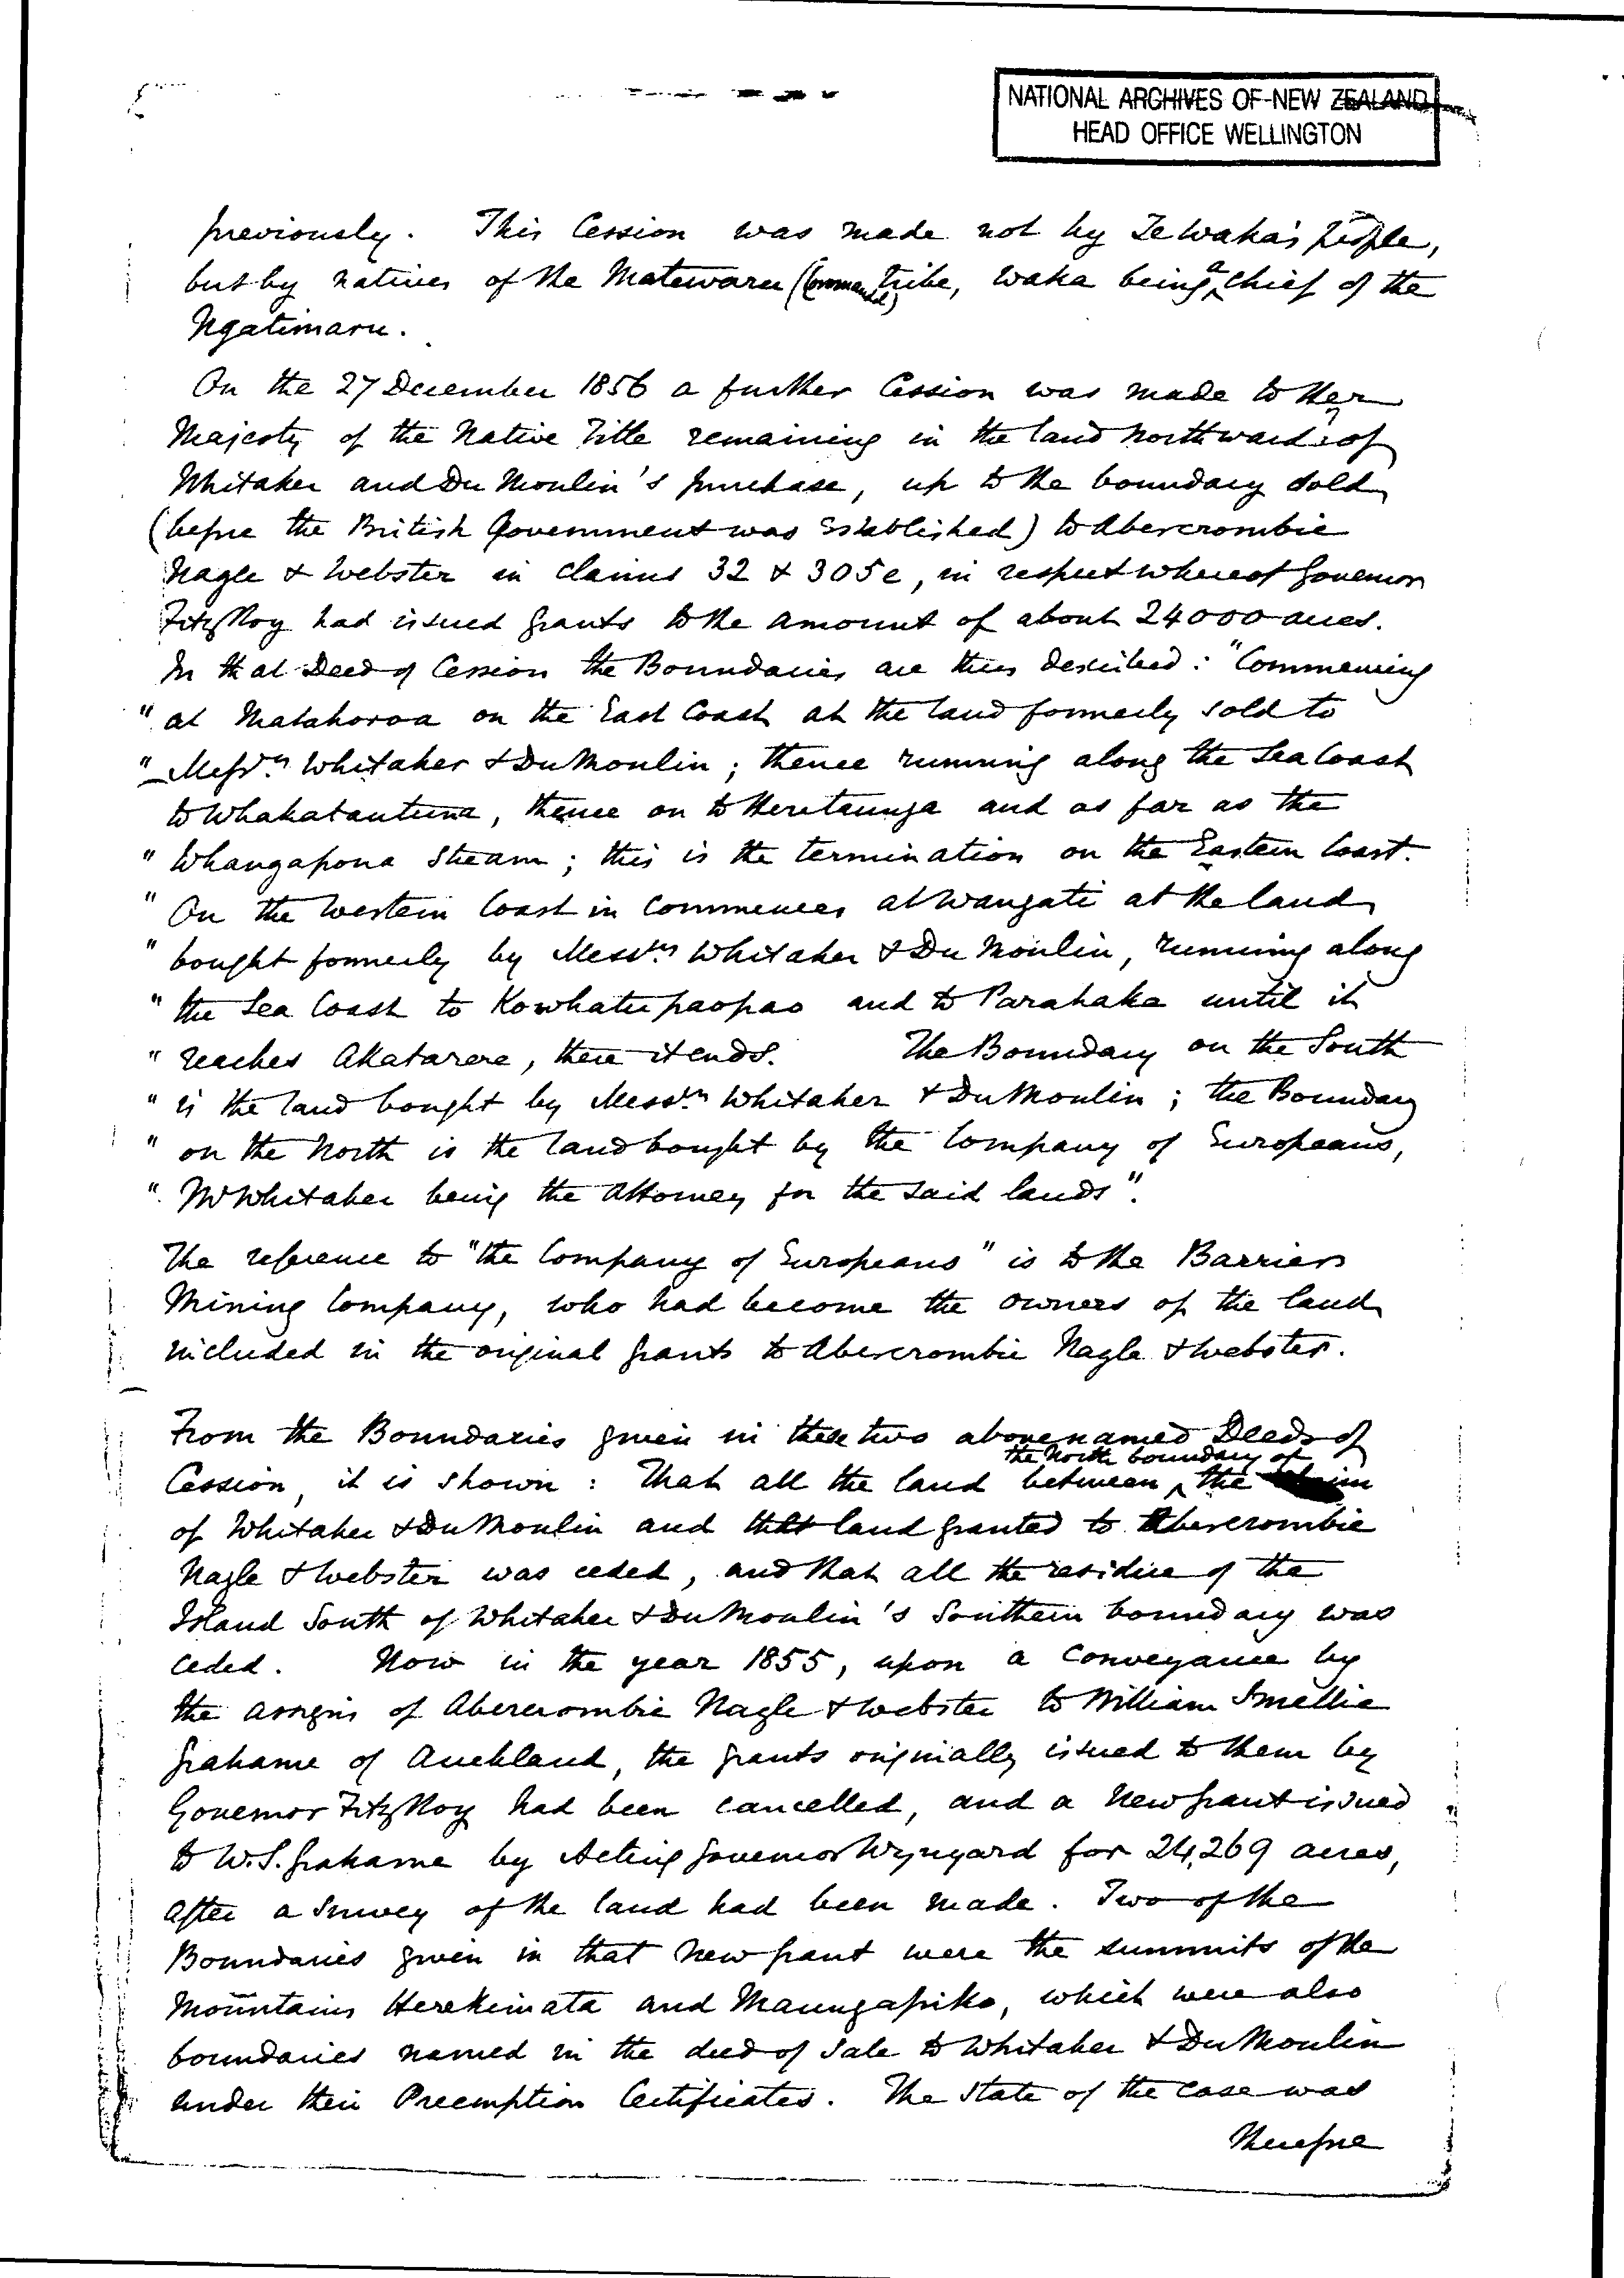 NATIONAL ARCHIVES OF NEW ZEALAND
HEAD OFFICE WELLINGTON
previously. This Cession was made not by Te Waka's people,
but by natives of the Matewaru tribe, Waka being a Chief of the
Ngatimaru.
On the 27 December 1856 a further Cession was made to Her
Majesty of the Native Title remaining in the land northward of
Whitaker and Du Moulin's purchase, up to the boundary sold
(before the British Government was established) to Abercrombie
Nagle & Webster in claims 32 & 305e, in respect whereof Governor
FitzRoy had issued grants to the amount of about 24000 acres.
In that Deed of Cession the Boundaries are thus described: "Commencing
" at Matahoroa on the East Coast at the land formerly sold to
" Messrs Whitaker & Du Moulin; thence running along the Sea Coast
to Whakatautuna, thence on to Heretaunga and as far as the
" Whangapoua Stream; this is the termination on the Eastern Coast.
" On the Western Coast in commences at Wangati at the land
" bought formerly by Messrs Whitaker & Du Moulin, running along
" the Sea Coast to Kowhatupaopao and to Parahake until it
" reaches Akatarere, there it ends. The Boundary on the South
" is the land bought by Messrs Whitaker & Du Moulin; the Boundary
" on the North is the land bought by the Company of Europeans,
" Mr Whitaker being the Attorney for the said lands".
The reference to "the Company of Europeans" is to the Barrier
Mining Company, who had become the owners of the land
included in the original grants to Abercrombie Nagle & Webster.
From the Boundaries given in these two abovenamed Deeds of
Cession, it is shown: That all the land between the North boundary of the claim
of Whitaker & Du Moulin and that land granted to Abercrombie
Nagle & Webster was ceded, and that all the residue of the
Island South of Whitaker & Du Moulin's Southern boundary was
ceded. Now in the year 1855, upon a conveyance by
the assigns of Abercrombie Nagle & Webster to William Smellie
Grahame of Auckland, the grants originally issued to them by
Governor FitzRoy had been cancelled, and a new grant issued
to W.S. Grahame by Acting Governor Wynyard for 24,269 acres,
after a survey of the land had been made. Two of the
Boundaries given in that new grant were the summits of the
Mountains Herekimata and Maungapiko, which were also
boundaries named in the deed of Sale to Whitaker & Du Moulin
under their Preemption Certificates. The state of the case was
therefore